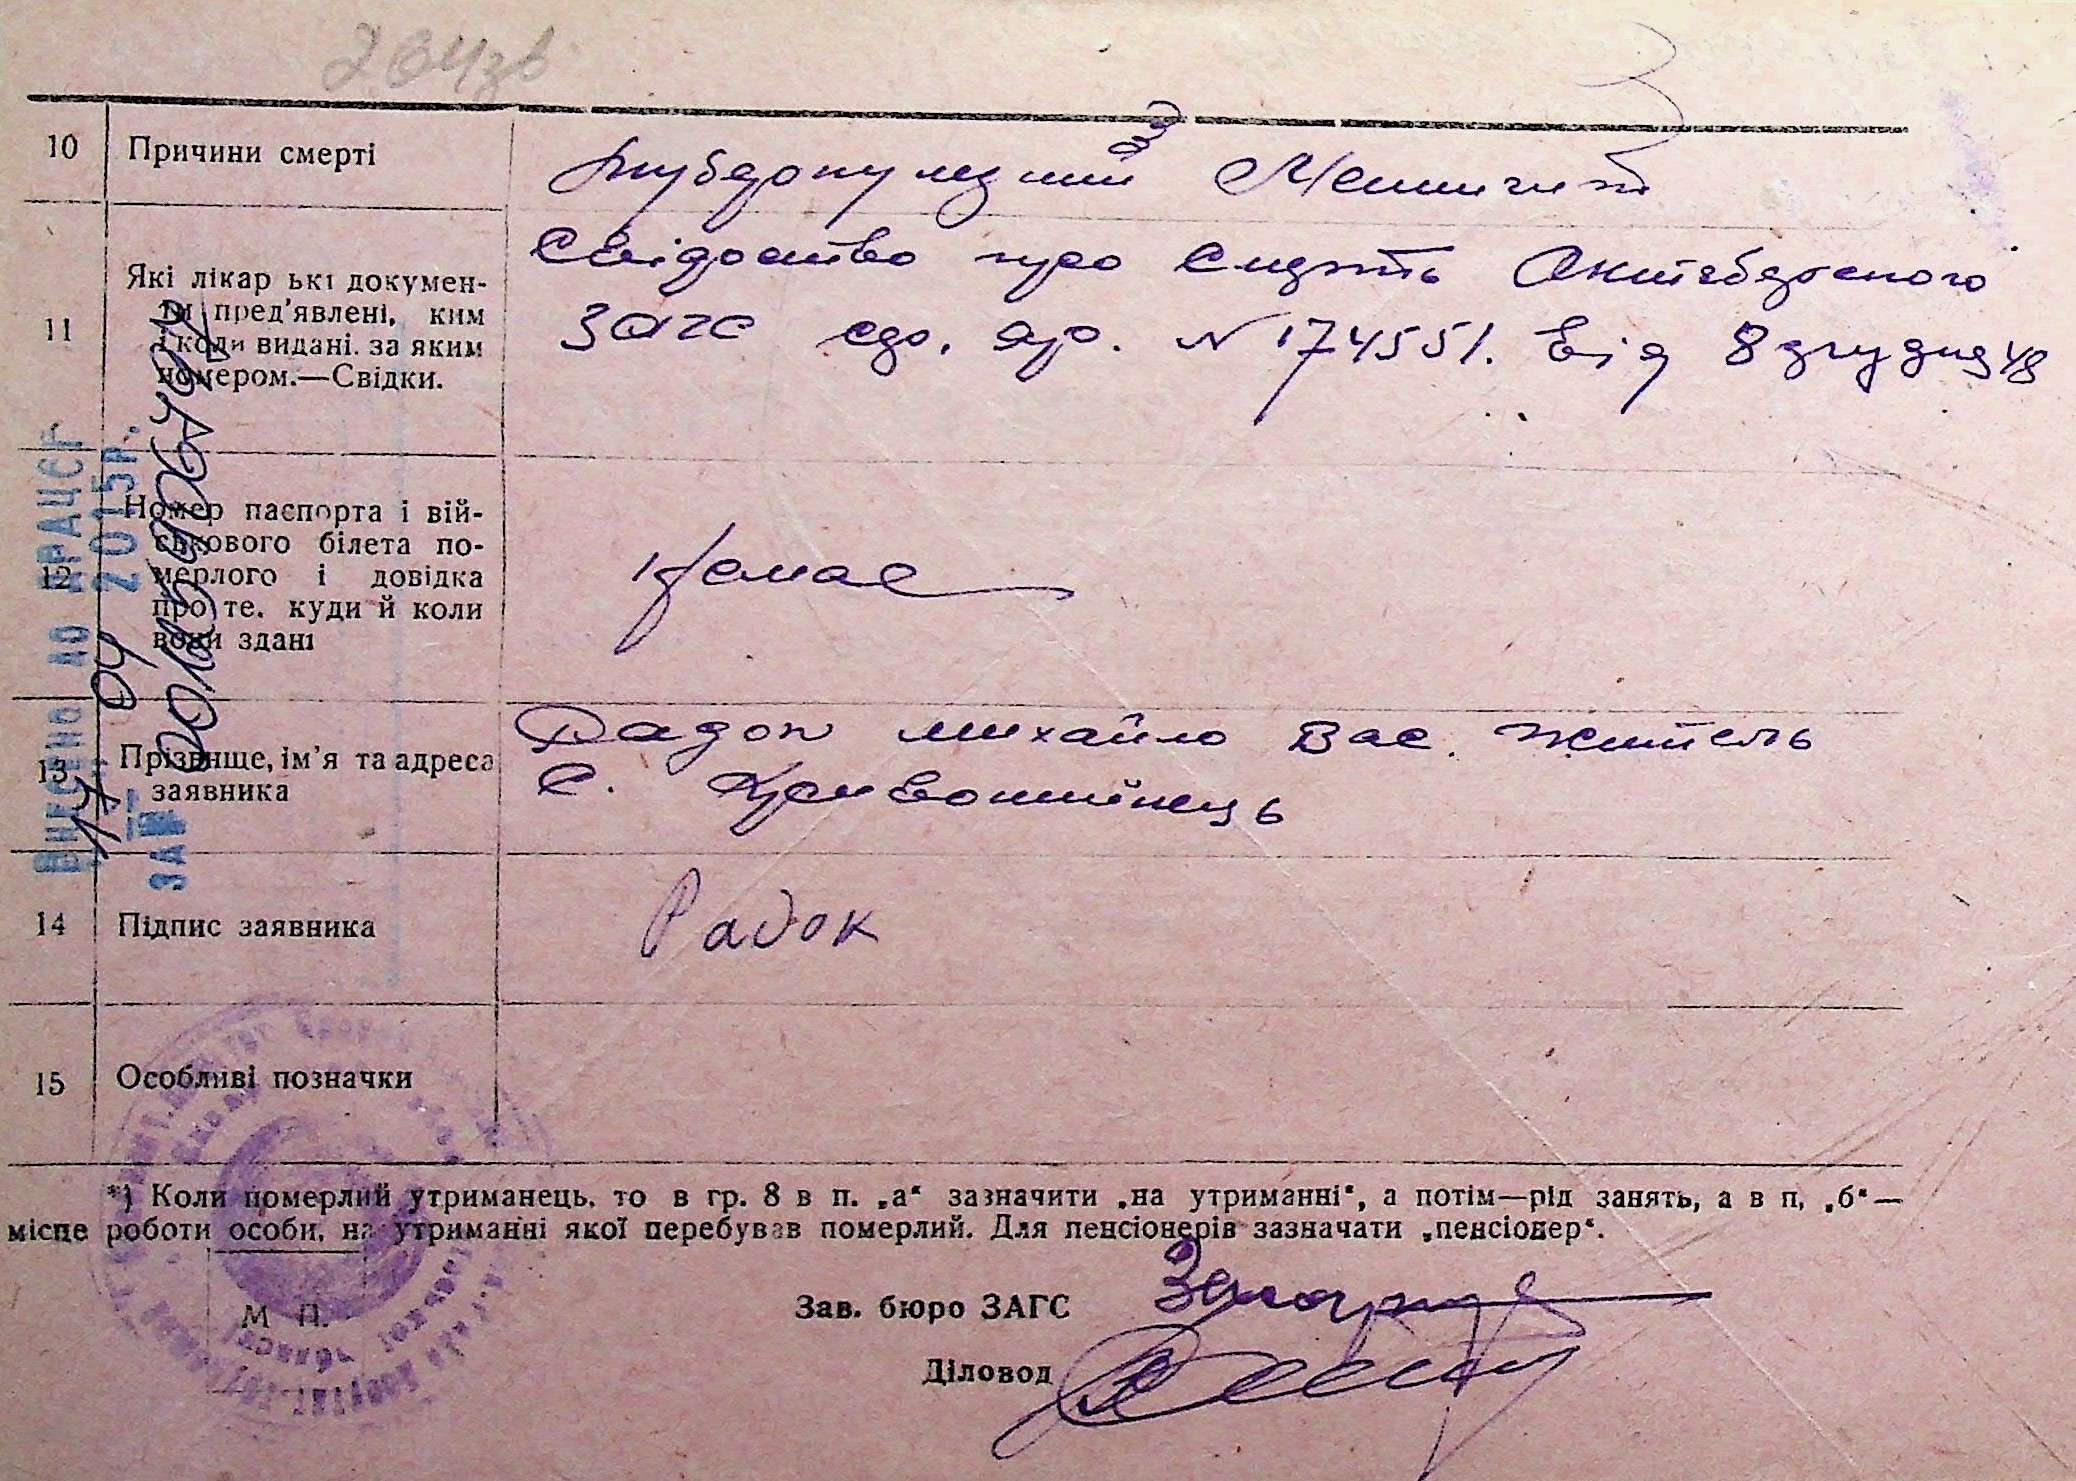 10 Причини смерті
Туберкулезний Менингит
11 Які лікар ькі докумен-
ти пред'явлені, ким
і коли видані. за яким
номером.—Свідки.
Свідоство про смерть Октябрського
ЗАГС № 174551. від 8 грудня 48
12 Номер паспорта і вій-
ськового білета по-
мерлого і довідка
про те. куди й коли
вони здані
немае
13 Прізвище, ім'я та адреса
заявника
Радок михайло Вас. житель
с. Кривошиїнець
14 Підпис заявника
Радок
15 Особливі позначки
*) Коли померлий утриманець. то в гр. 8 в п. „а“ зазначити „на утриманні“, а потім—рід занять, а в п, „б“—
місце роботи особи, на утриманні якої перебував померлий. Для пенсіонерів зазначати „пенсіонер“.
М П.
Зав. бюро ЗАГС
Діловод
ВНЕСЕНО ДО ДРАЦСГ
17 04 2015р.
ЗА №